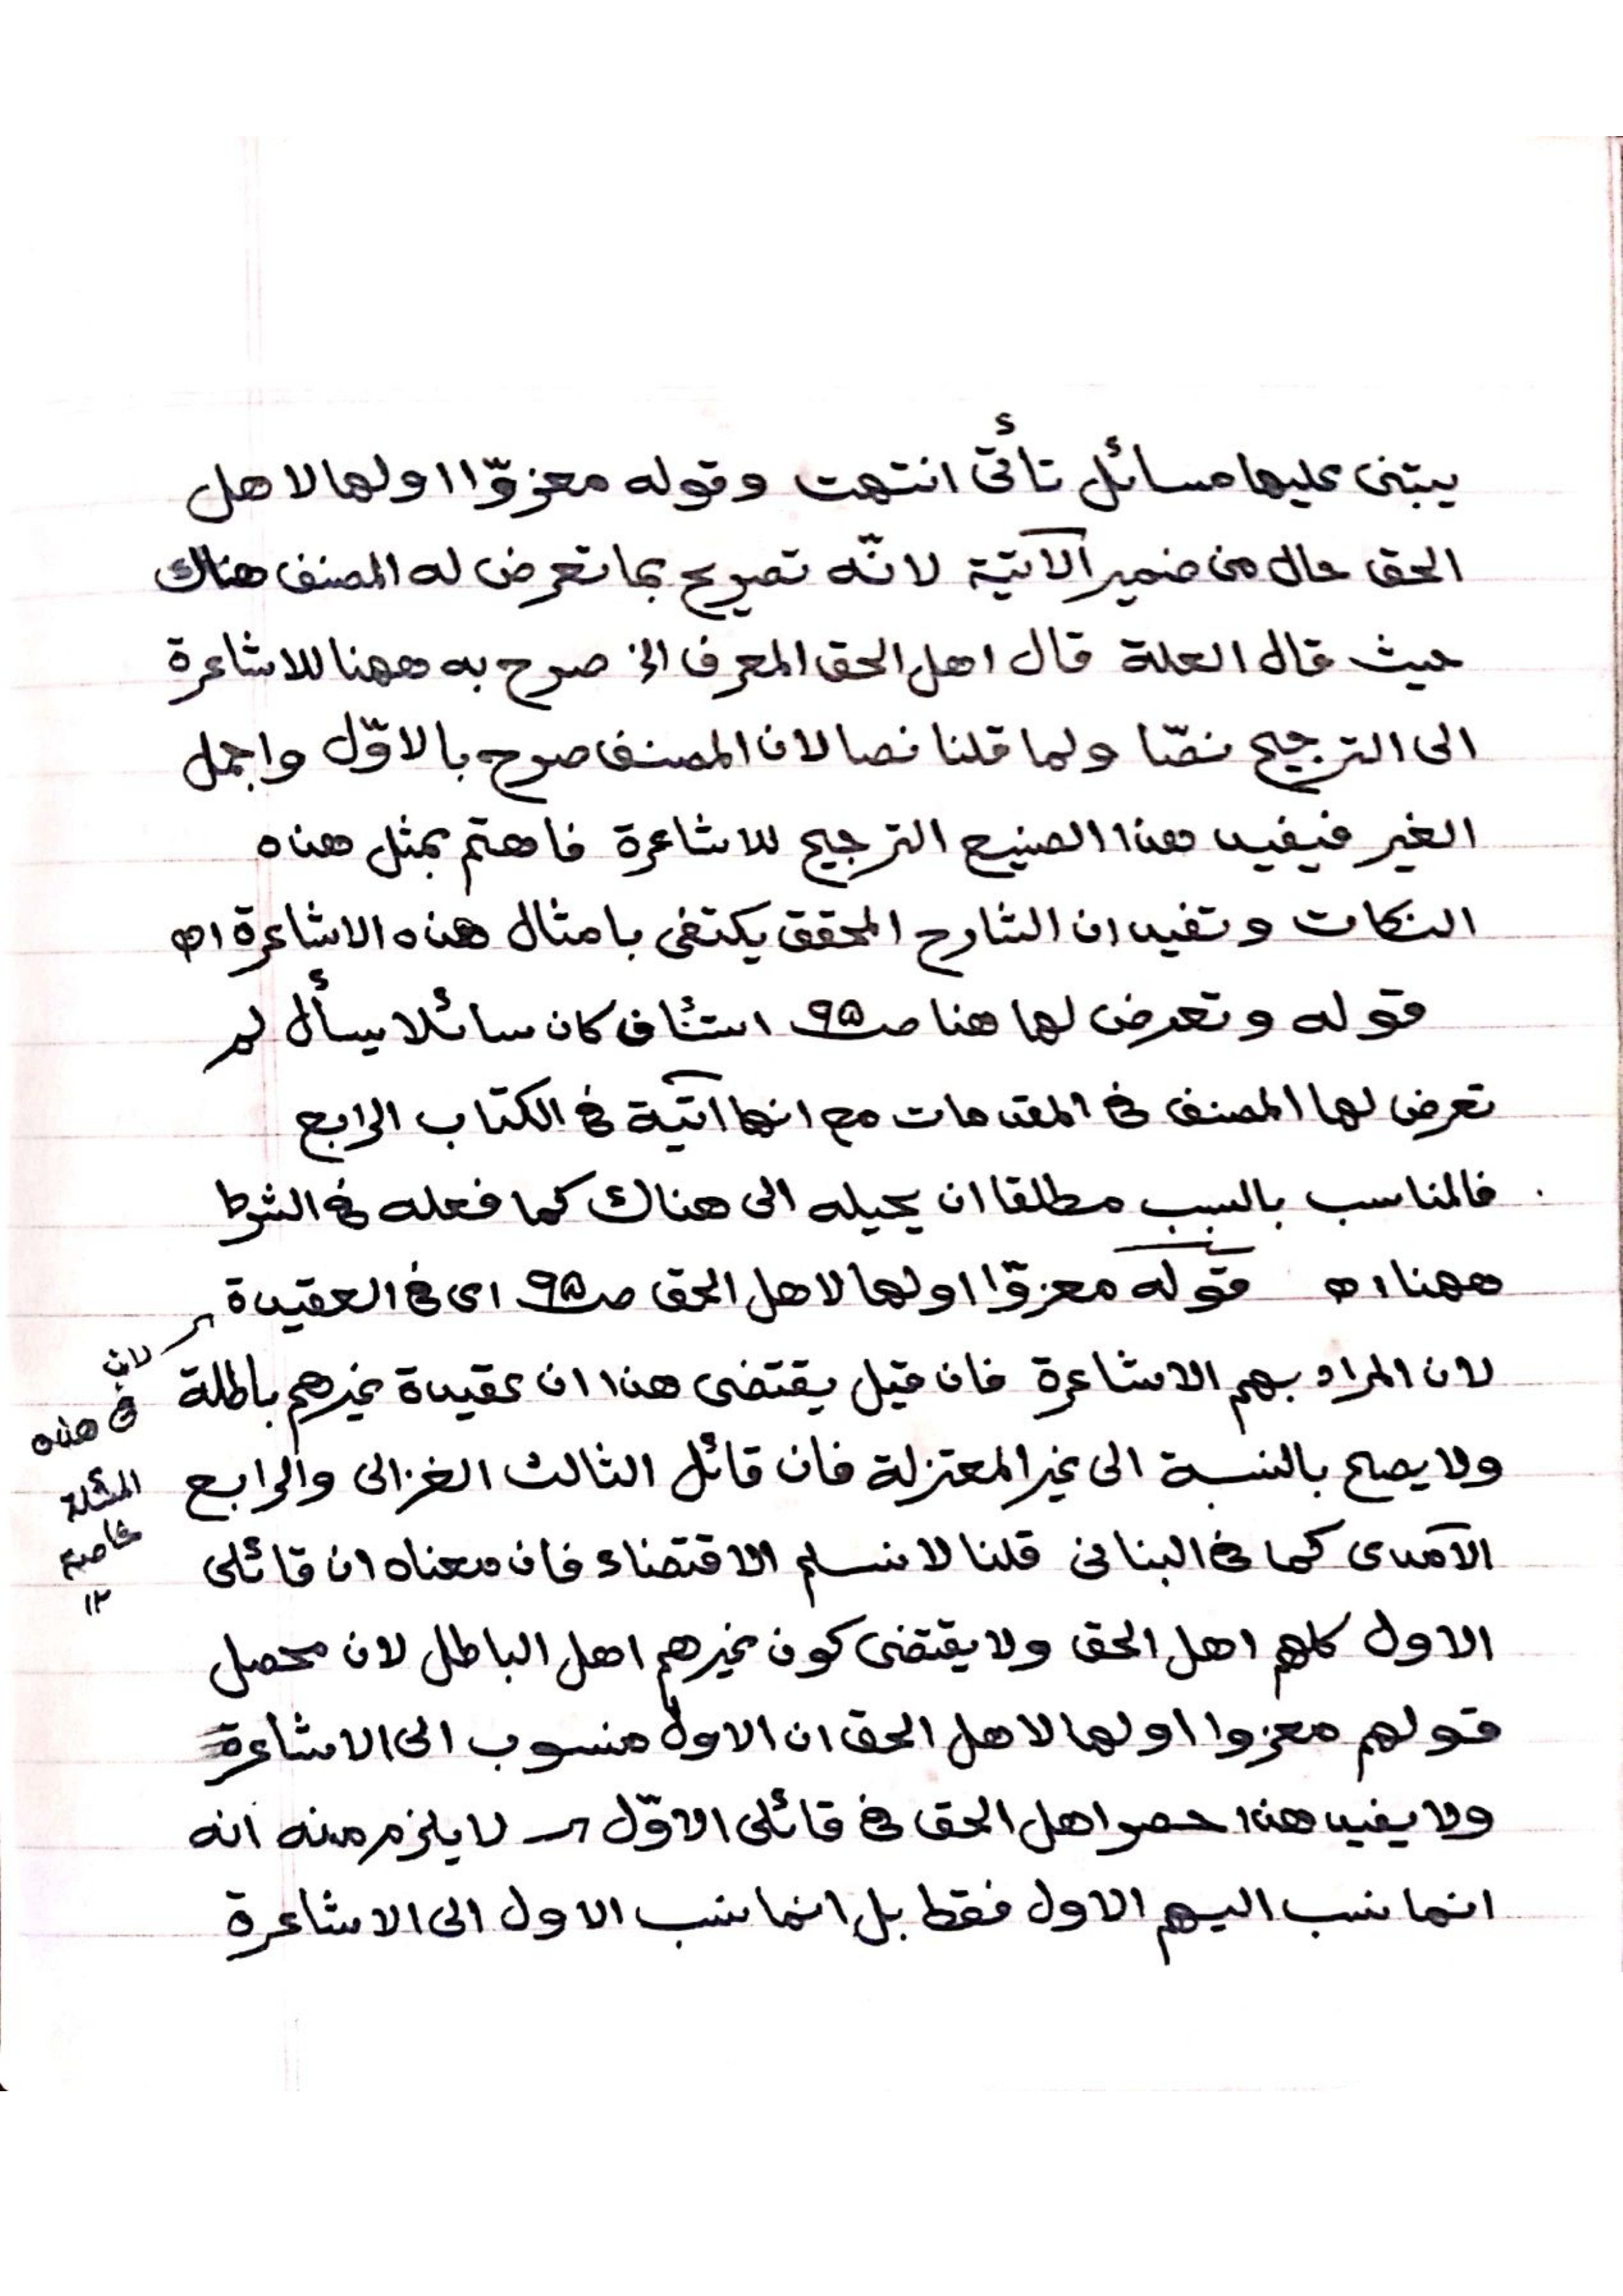 يبتنى عليها مسائل تأتى انتهت وقوله معزوّا اولها لاهل
الحق حال من ضمير الآتيّة لانّه تصريح بما تعرض له المصنف هناك
حيث قال العلة قال اهل الحق المعرف الخ صرح به ههنا للاشاعرة
الى الترجيح نصّا ولما قلنا نصا لان المصنف صرح بالاوّل واجمل
الغير فيفيد هذا الصنيع الترجيح للاشاعرة فاهتم بمثل هذه
النكات وتفيد ان الشارح المحقق يكتفى بامثال هذه الاشاعرة اه
قوله وتعرض لها هنا صـ٩٥ استئناف كان سائلا يسأل لم
تعرض لها المصنف فى المقدمات مع انها آتية فى الكتاب الرابع
فالمناسب بالسبب مطلقا ان يحيله الى هناك كما فعله فى الشرط
ههنا اه قوله معزوّا اولها لاهل الحق صـ٩٥ اى فى العقيدة
لان المراد بهم الاشاعرة فان قيل يقتضى هذا ان عقيدة غيرهم باطلة
ولا يصح بالنسبة الى غير المعتزلة فان قائل الثالث الغزالى والرابع
الآمدى كما فى البنانى قلنا لا نسلم الاقتضاء فان معناه ان قائلى
الاول كلهم اهل الحق ولا يقتضى كون غيرهم اهل الباطل لان محصل
قولهم معزوا اولها لاهل الحق ان الاول منسوب الى الاشاعرة
ولا يفيد هذا حصر اهل الحق فى قائلى الاوّل لا يلزم منه انه
انما ينسب اليهم الاول فقط بل انما ينسب الاول الى الاشاعرة
لان
فى هذه
المسئلة
خاصة
١٢